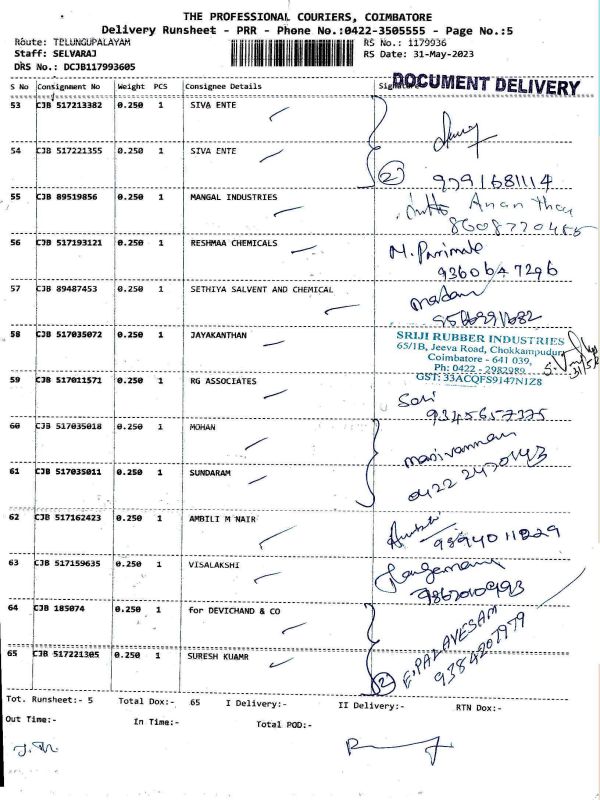 THE PROFESSIONAL COURIERS, COIMBATORE
Delivery Runsheet - PRR - Phone No.:0422-3505555 - Page No.:5
Route: TELUNGUPALAYAM RS No.: 1179936
Staff: SELVARAJ RS Date: 31-May-2023
DRS No.: DCJB117993605
DOCUMENT DELIVERY
S No Consignment No Weight PCS Consignee Details Signature
53 CJB 517213382 0.250 1 SIVA ENTE
54 CJB 517221355 0.250 1 SIVA ENTE
2 9791681114
55 CJB 89519856 0.250 1 MANGAL INDUSTRIES
8608770455
56 CJB 517193121 0.250 1 RESHMAA CHEMICALS M. Parimala
9360647296
57 CJB 89487453 0.250 1 SETHIYA SALVENT AND CHEMICAL
58 CJB 517035072 0.250 1 JAYAKANTHAN
SRIJI RUBBER INDUSTRIES
65/1B, Jeeva Road, Chokkampudur,
Coimbatore - 641 039,
Ph: 0422 - 2982989
GST: 33ACQFS9147N1Z8
59 CJB 517011571 0.250 1 RG ASSOCIATES
9345657375
60 CJB 517035018 0.250 1 MOHAN
manivannan
0422 2470143
61 CJB 517035011 0.250 1 SUNDARAM
62 CJB 517162423 0.250 1 AMBILI M NAIR
9894011229
63 CJB 517159635 0.250 1 VISALAKSHI
64 CJB 185074 0.250 1 for DEVICHAND & CO
E. PALAVESAM
9384207979
65 CJB 517221305 0.250 1 SURESH KUAMR
2
Tot. Runsheet:- 5 Total Dox:- 65 I Delivery:- II Delivery:- RTN Dox:-
Out Time:- In Time:- Total POD:-